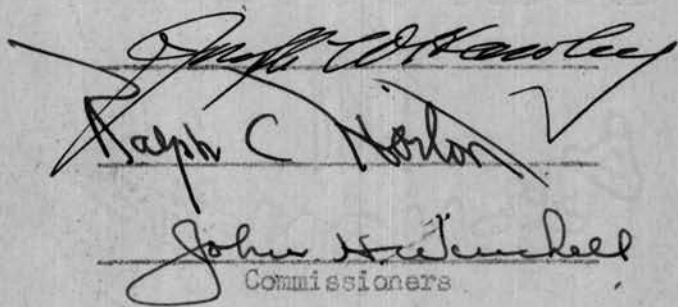 Joseph W Hawley
Ralph C Horton
John H. Winchell
Commissioners